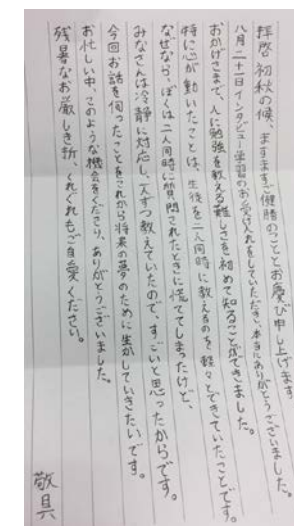 拝啓 初秋の候、ますますご健勝のこととお慶び申し上げます。
八月二十一日インタビュー学習のお受け入れをしていただき、本当にありがとうございました。
おかげさまで、人に勉強を教える難しさを初めて知ることができました。
特に心が動いたことは、生徒を二人同時に教えるのを軽々とできていたことです。
なぜなら、ぼくは二人同時に質問されたときに慌ててしまったけど、
みなさんは冷静に対応し、一人ずつ教えていたので、すごいと思ったからです。
今回お話を伺ったことをこれから将来の夢のために生かしていきたいです。
お忙しい中、このような機会をくださり、ありがとうございました。
残暑なお厳しき折、くれぐれもご自愛ください。
敬具